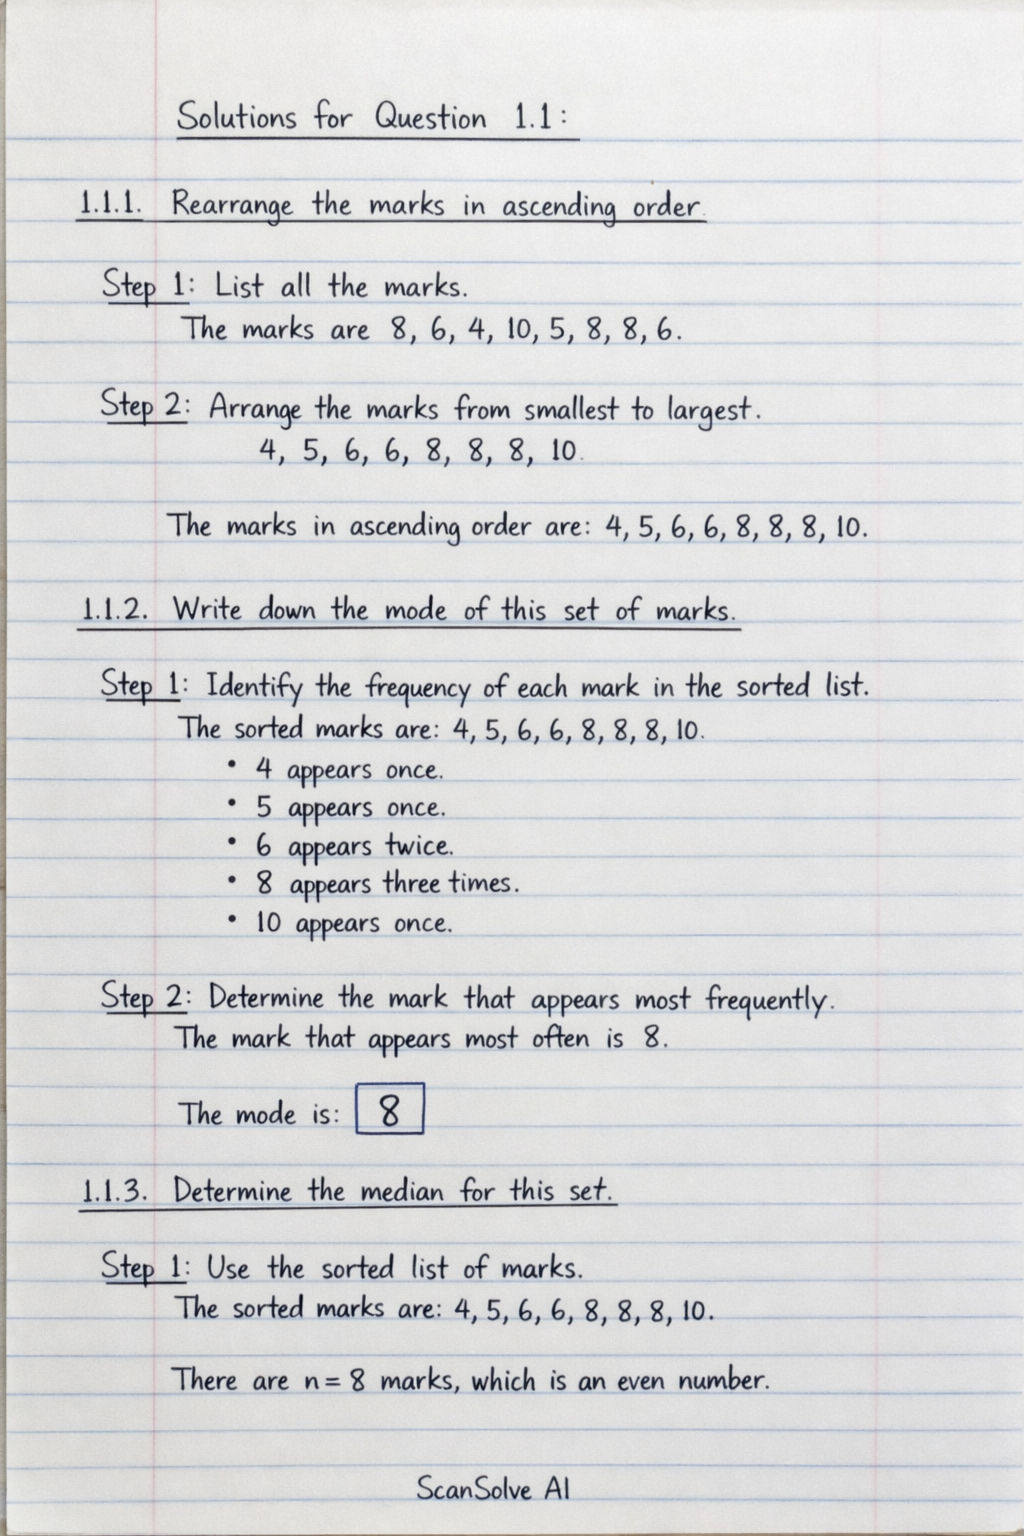 Solutions for Question 1.1:
1.1.1. Rearrange the marks in ascending order.
Step 1: List all the marks.
The marks are 8, 6, 4, 10, 5, 8, 8, 6.
Step 2: Arrange the marks from smallest to largest.
4, 5, 6, 6, 8, 8, 8, 10.
The marks in ascending order are: 4, 5, 6, 6, 8, 8, 8, 10.
1.1.2. Write down the mode of this set of marks.
Step 1: Identify the frequency of each mark in the sorted list.
The sorted marks are: 4, 5, 6, 6, 8, 8, 8, 10.
• 4 appears once.
• 5 appears once.
• 6 appears twice.
• 8 appears three times.
• 10 appears once.
Step 2: Determine the mark that appears most frequently.
The mark that appears most often is 8.
The mode is: 8
1.1.3. Determine the median for this set.
Step 1: Use the sorted list of marks.
The sorted marks are: 4, 5, 6, 6, 8, 8, 8, 10.
There are n = 8 marks, which is an even number.
ScanSolve AI